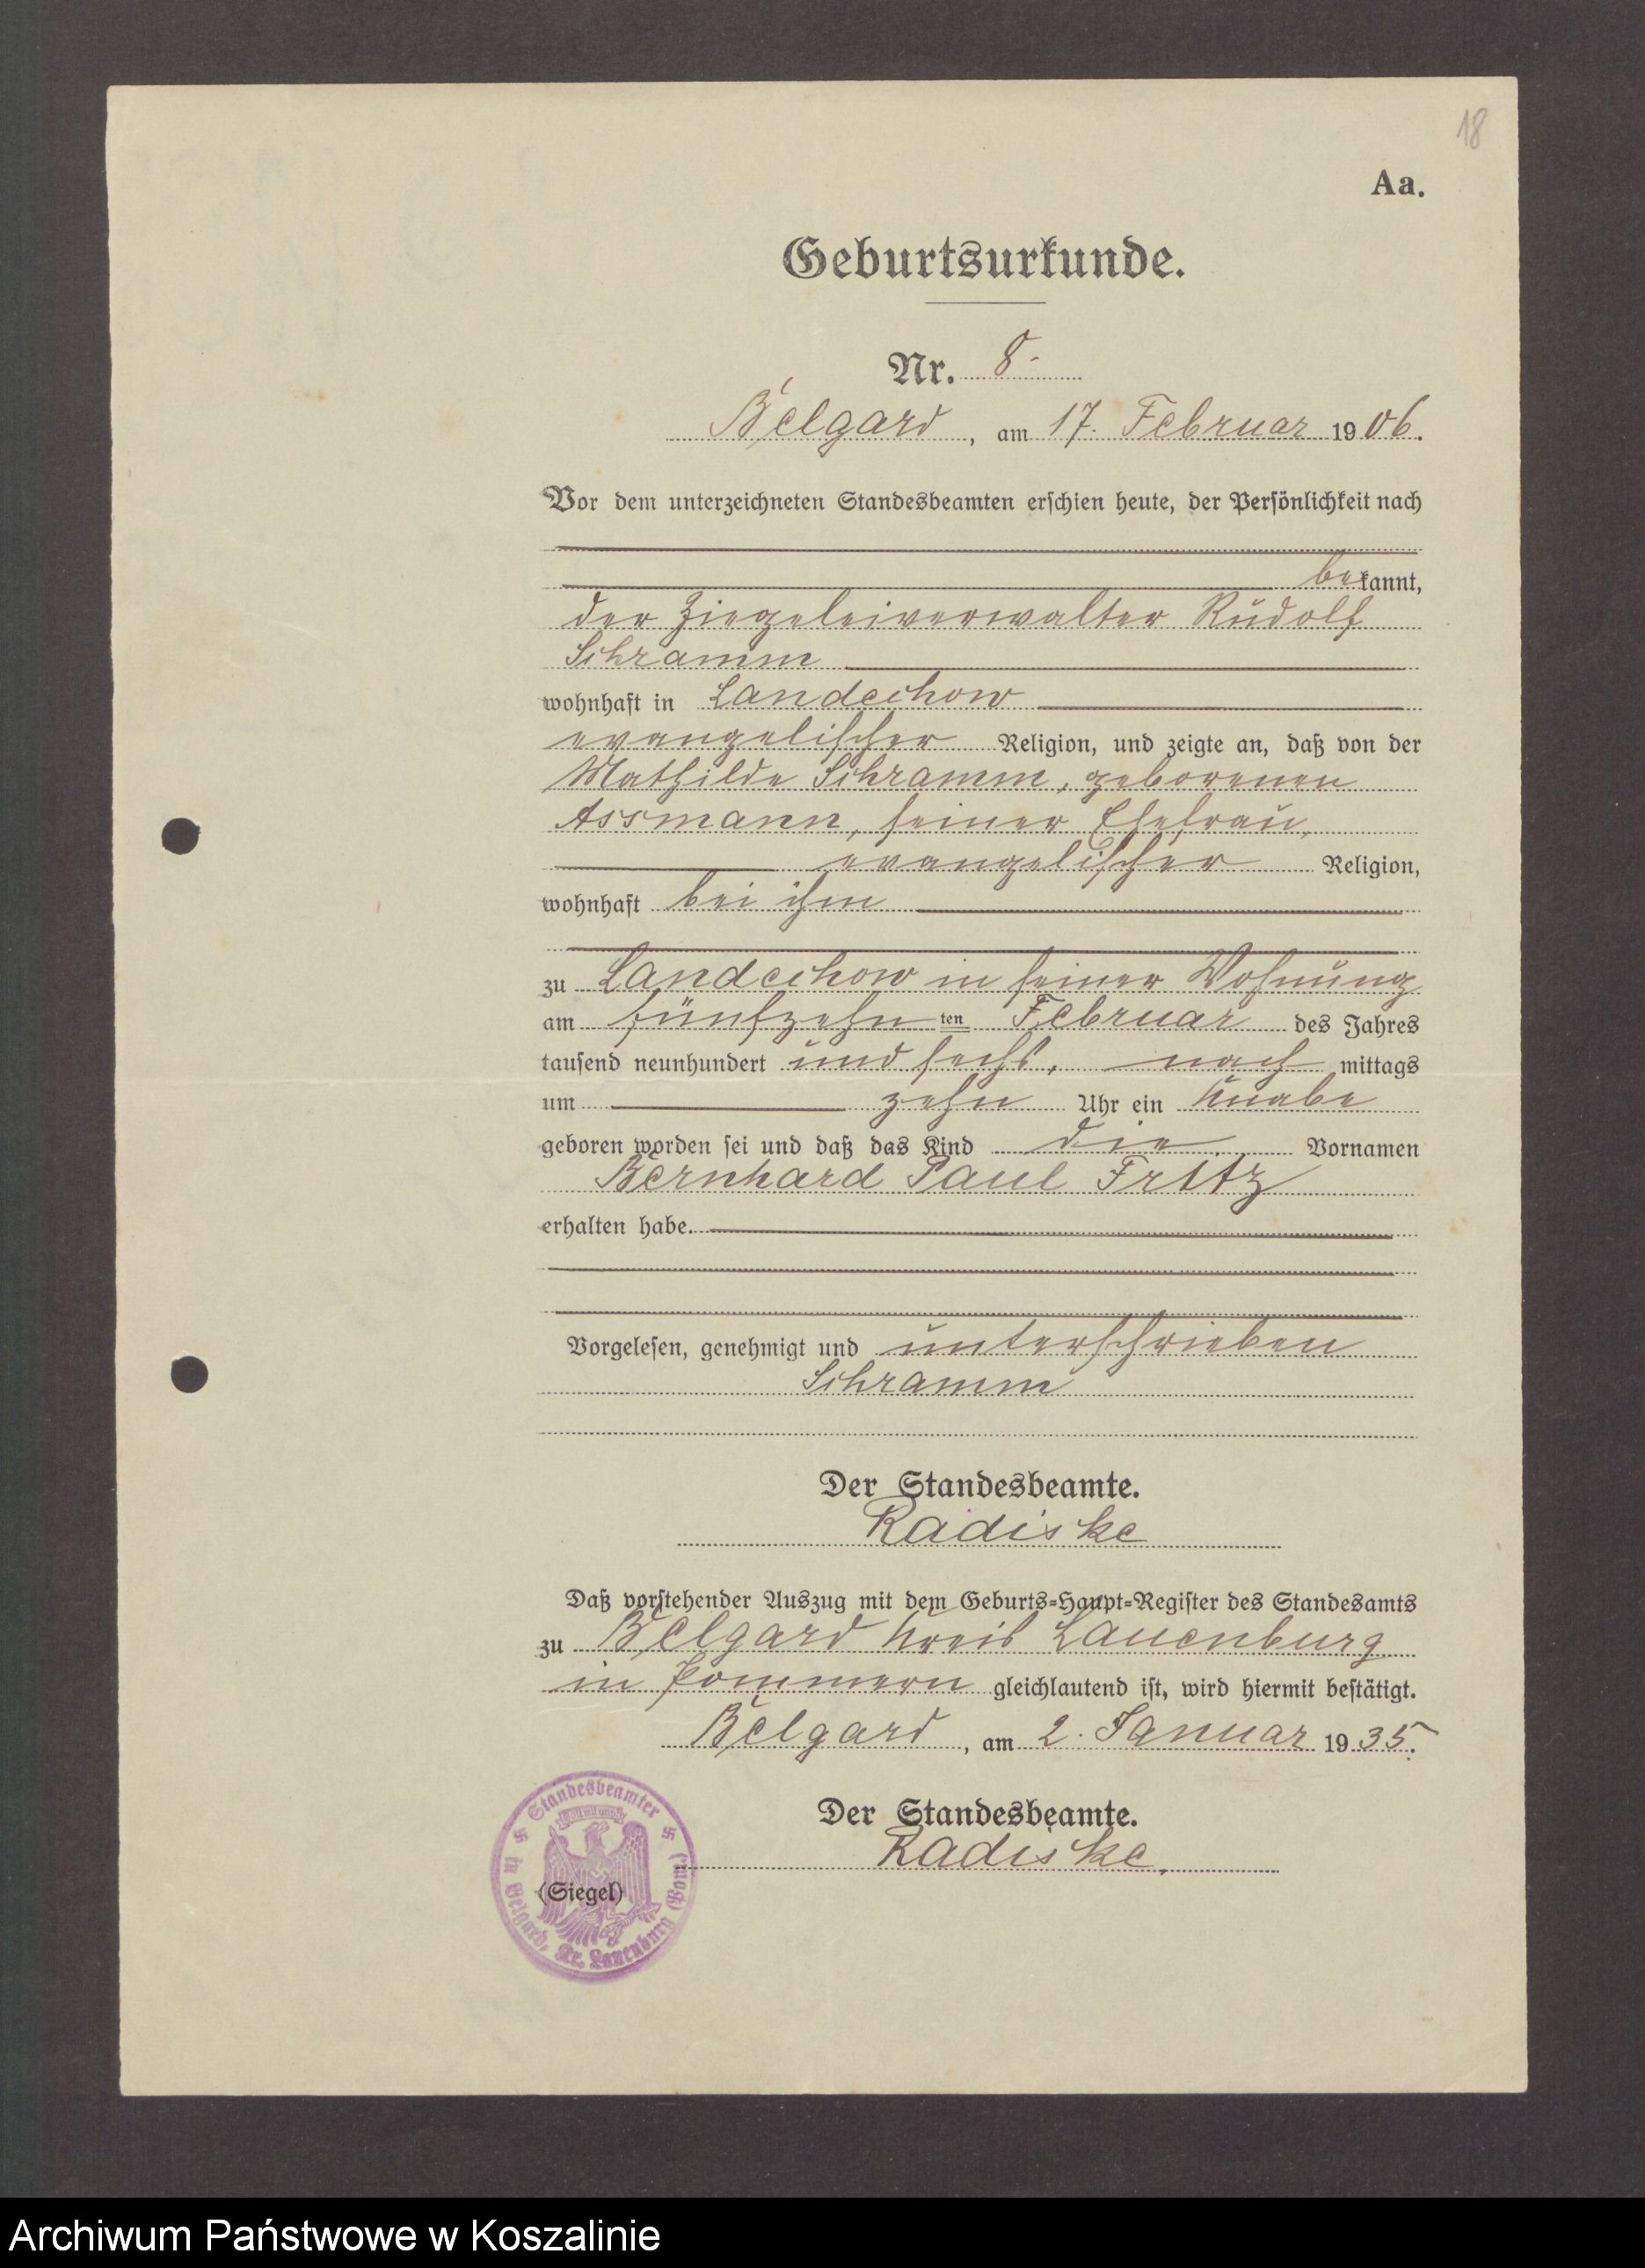 18
Aa.
Geburtsurkunde.
Nr. 8.
Belgard, am 17. Februar 1906.
Vor dem unterzeichneten Standesbeamten erschien heute, der Persönlichkeit nach
bekannt,
der Ziegeleiverwalter Rudolf
Schramm
wohnhaft in Landechow
evangelischer Religion, und zeigte an, daß von der
Mathilde Schramm, geborenen
Assmann, seiner Ehefrau,
evangelischer Religion,
wohnhaft bei ihm
zu Landechow in seiner Wohnung
am fünfzehn ten Februar des Jahres
tausend neunhundert und sechs, nach mittags
um zehn Uhr ein Knabe
geboren worden sei und daß das Kind die Vornamen
Bernhard Paul Fritz
erhalten habe.
Vorgelesen, genehmigt und unterschrieben
Schramm
Der Standesbeamte.
Radiske
Daß vorstehender Auszug mit dem Geburts-Haupt-Register des Standesamts
zu Belgard Kreis Lauenburg
in Pommern gleichlautend ist, wird hiermit bestätigt.
Belgard, am 2. Januar 1935.
Der Standesbeamte.
Radiske.
(Siegel)
Standesbeamter
in Belgard, Kr. Lauenburg (Pom.)
Archiwum Państwowe w Koszalinie